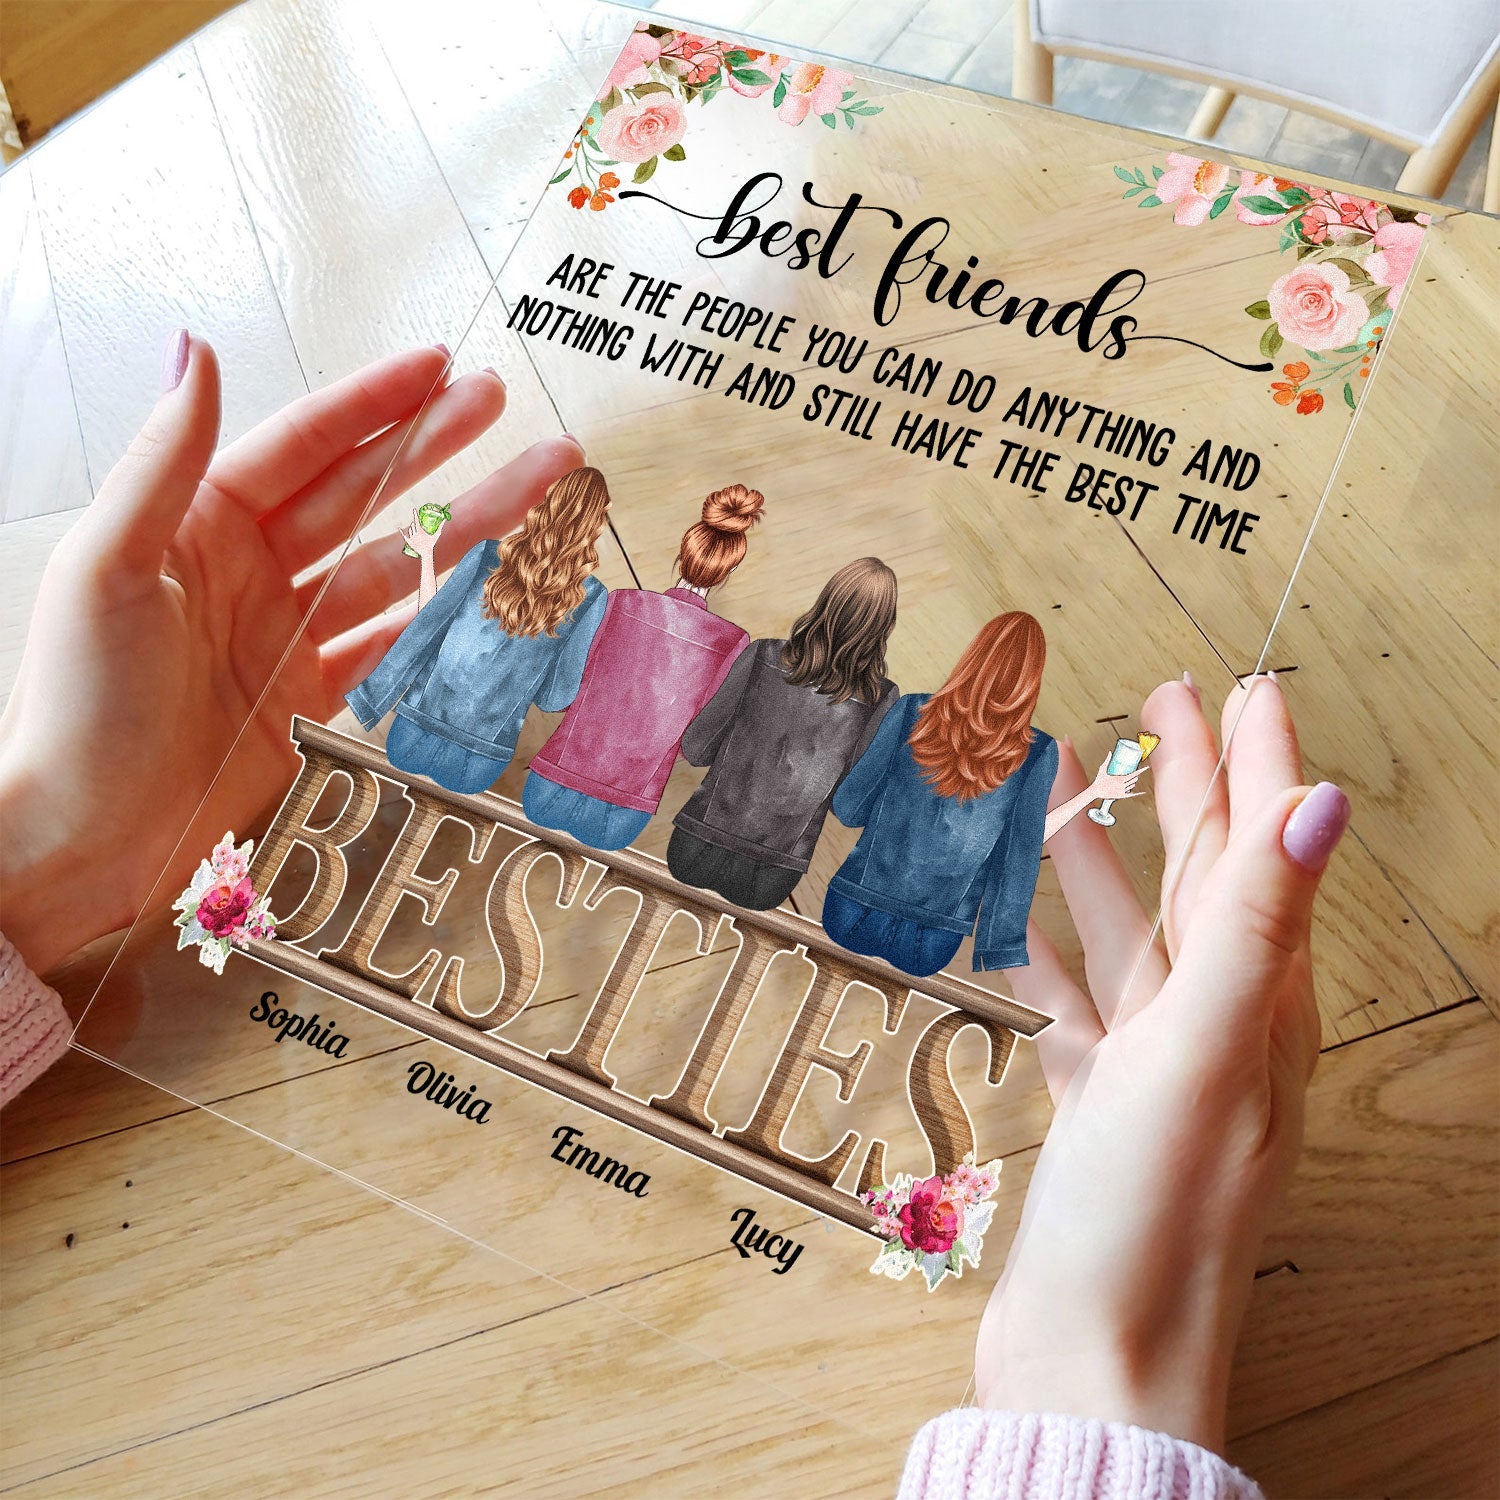 best friends
ARE THE PEOPLE YOU CAN DO ANYTHING AND
NOTHING WITH AND STILL HAVE THE BEST TIME
BESTIES
Sophia
Olivia
Emma
Lucy